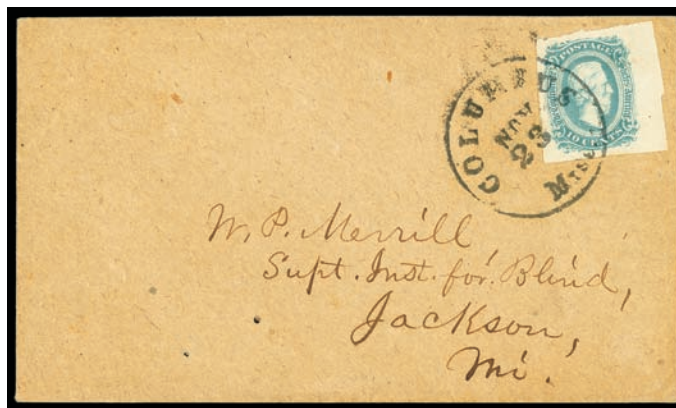 POSTAGE
10 CENTS
COLUMBUS
NOV
23
W. P. Merrill,
Supt. Inst. for Blind,
Jackson,
Mi.